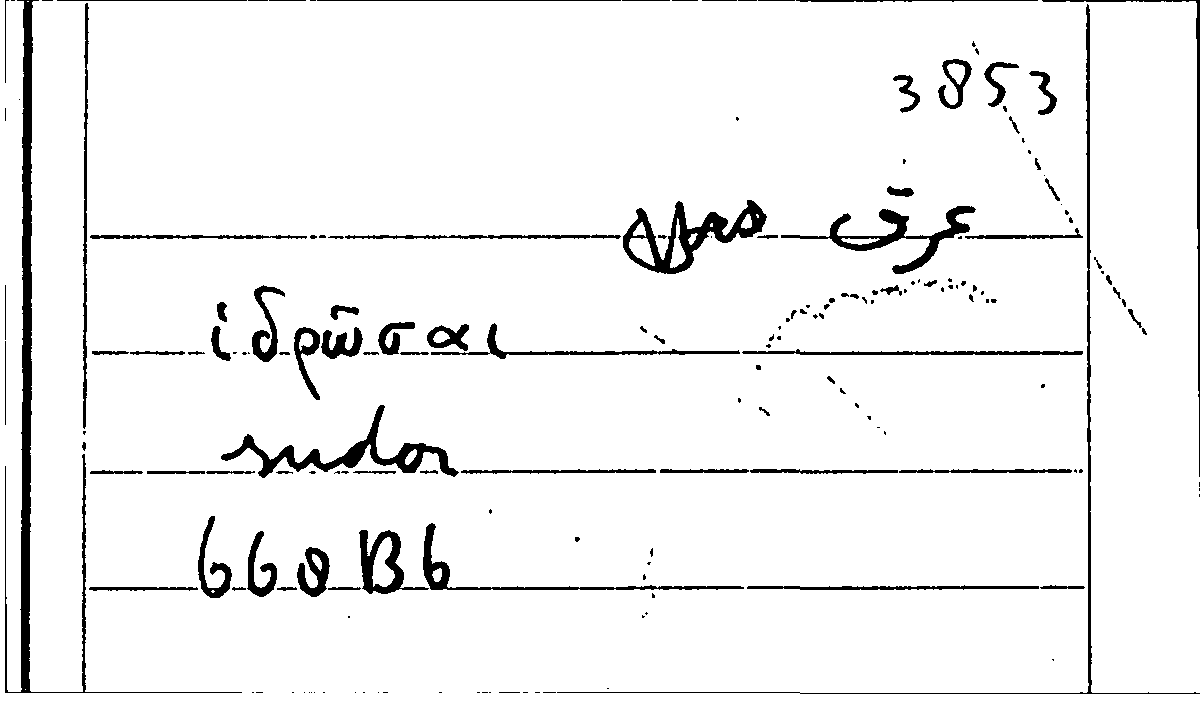 3853
عرق
ἱδρῶσαι
sudor
660 B6